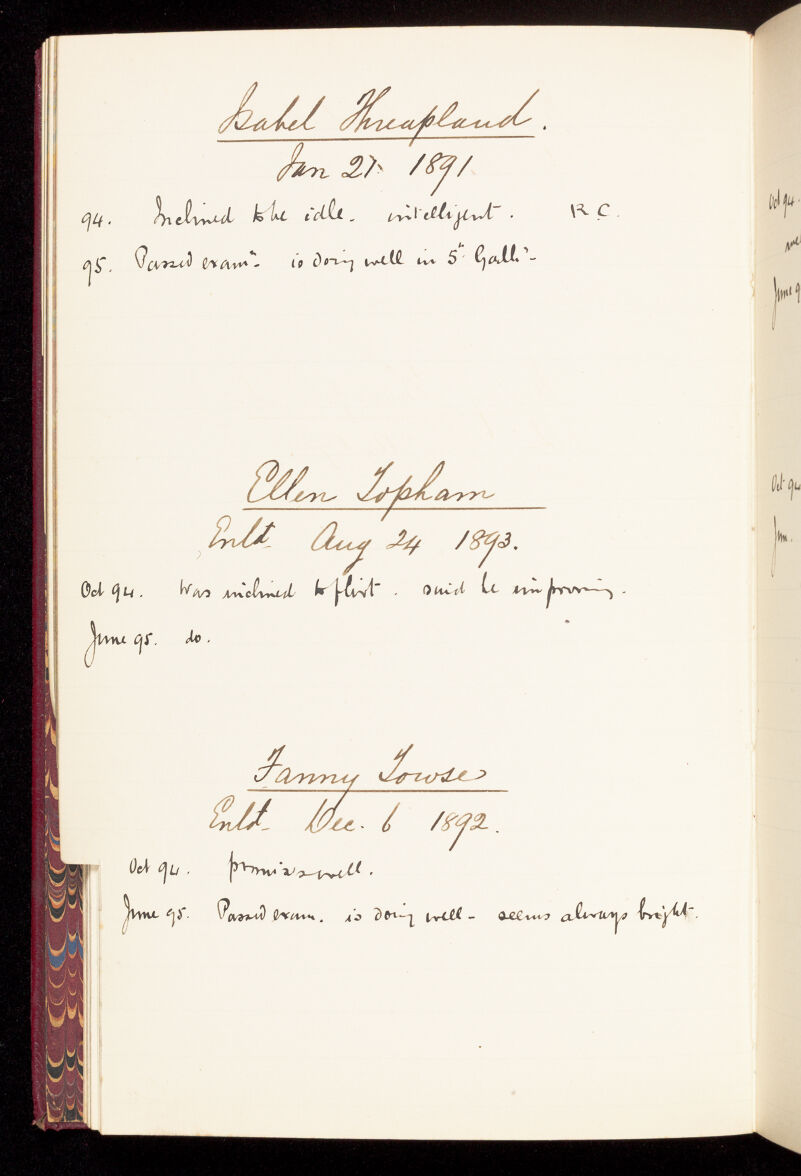 Isabel Threapland.
Jan 27. 1891
94. Inclined to be idle - intelligent. R.C.
95. Passed examn - is doing well in 5th
Ellen Topham
Enld Aug 24 1893.
Oct 94. Was inclined to flirt. said be improving.
June 95. do.
Fanny Towse
Enld - Dec. 6 1892.
Oct 94. promises well.
June 95. Passed exam. is doing well - seems always bright.
Oct 94.
June 9
Oct 94